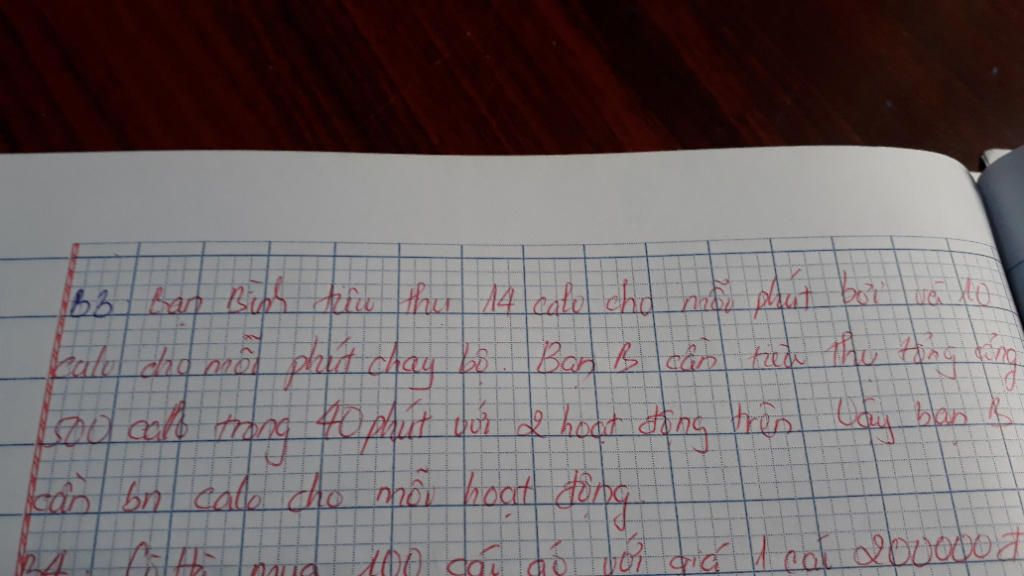 B3 Bạn Bình tiêu thụ 14 calo cho mỗi phút bơi và 10
calo cho mỗi phút chạy bộ. Bạn B cần tiêu thụ tổng cộng
500 calo trong 40 phút với 2 hoạt động trên Vậy bạn B
cần bn calo cho mỗi hoạt động.
B4. 100 cái áo với giá 1 cái 200000đ